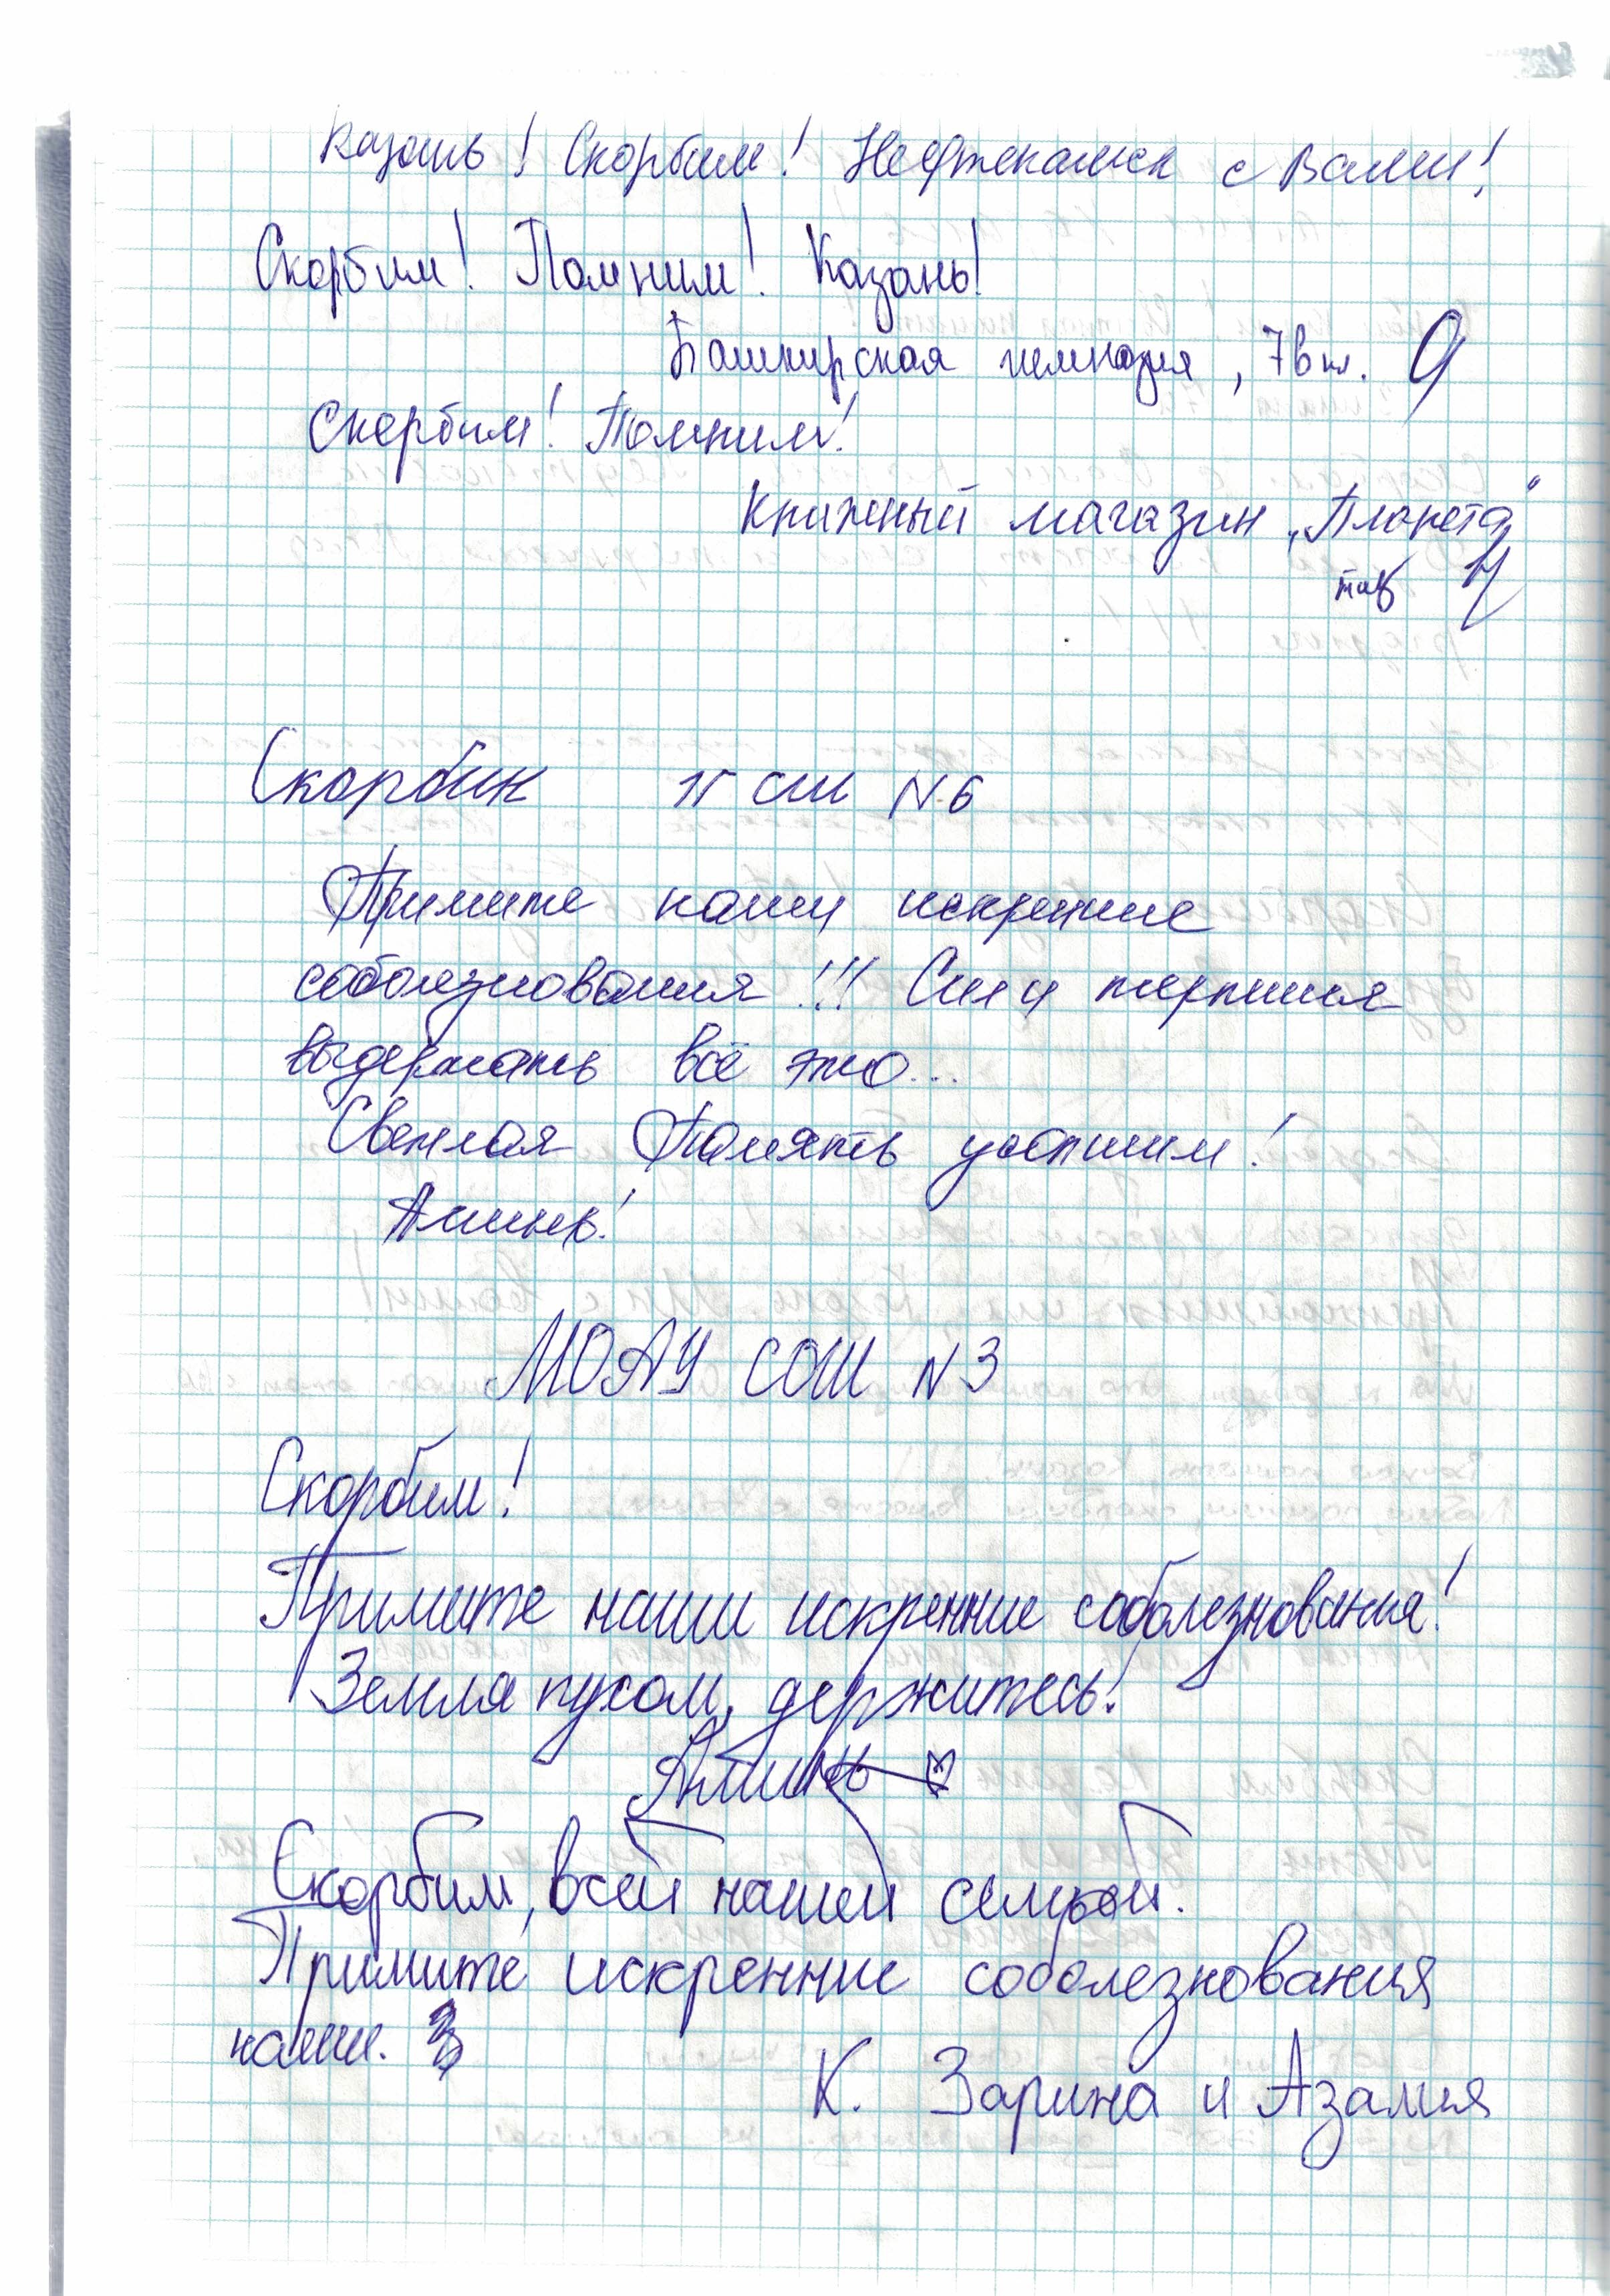 Казань! Скорбим! Нефтекамск с Вами!
Скорбим! Помним! Казань!
Башкирская гимназия, 7в кл.
Скорбим! Помним!
Книжный магазин „Планета"
Скорбим 1г СШ №6
Примите наши искренние
соболезнования!!! Сил и терпения
выдержать всё это...
Светлая Память усопшим!
Аминь!
МОАУ СОШ N3
Скорбим!
Примите наши искренние соболезнования!
Земля пухом, держитесь!
Аминь
Скорбим, всей нашей семьёй.
Примите искренние соболезнования
наши.
К. Зарина и Азалия